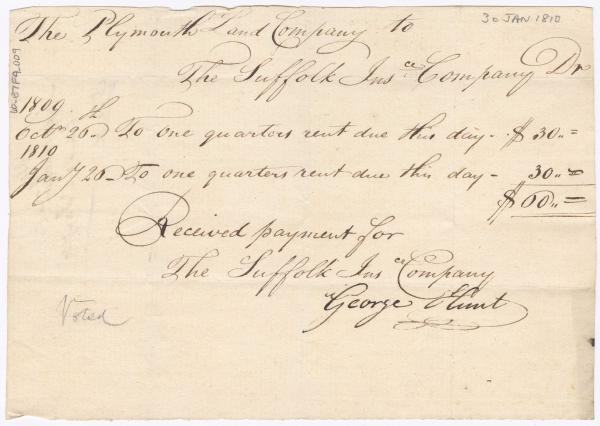 30 JAN 1810
The Plymouth Land Company to
The Suffolk Insce Company Dr
1809
Octr 26th To one quarters rent due this day - $ 30 " =
1810
Jany 26 - To one quarters rent due this day - 30 " =
$ 60 " =
Received payment for
The Suffolk Insce Company
George Hunt
Voted